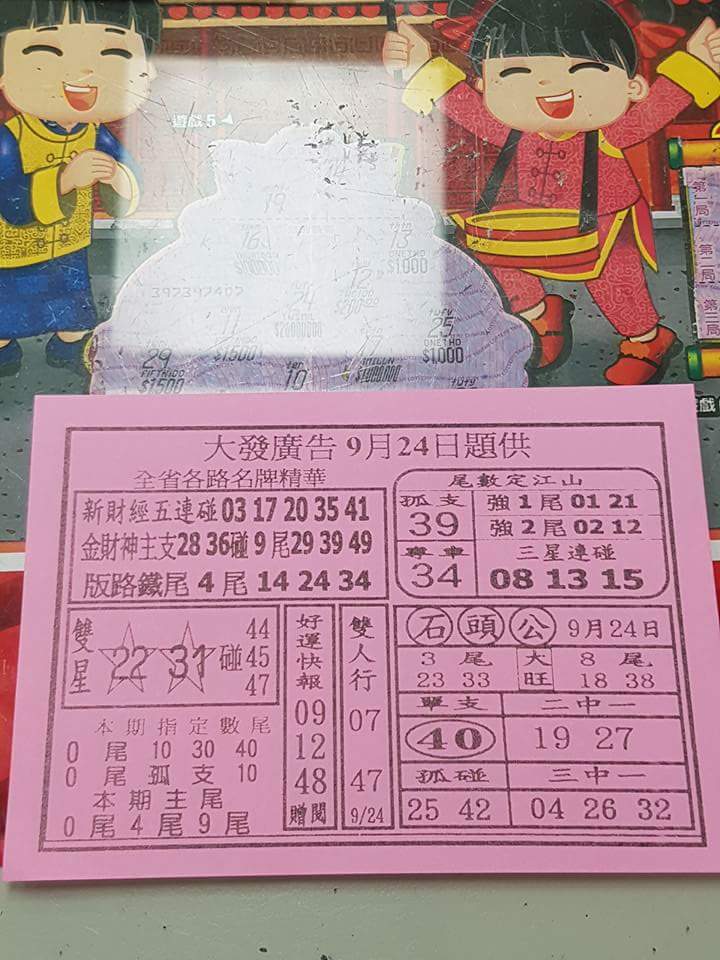 遊戲5
19
16
13
$1,000
12
397397407
24
$20000000
11
$1500
25
ONETHO
$1,000
29
$1500
10
$1000000
第一局
第二局
第三局
戲
大發廣告 9月24日題供
全省各路名牌精華
新財經五連碰 03 17 20 35 41
金財神主支 28 36碰 9 尾29 39 49
版路鐵尾 4 尾 14 24 34
尾數定江山
孤支
39
專車
34
強1尾 01 21
強2尾 02 12
三星連碰
08 13 15
雙星
22 31
碰
44
45
47
本期指定數尾
0 尾 10 30 40
0 尾 孤 支 10
本期主尾
0 尾 4 尾 9 尾
好運快報
09
12
48
贈閱
雙人行
07
47
9/24
石頭公 9月24日
3 尾
23 33
大旺
8 尾
18 38
單支
40
二中一
19 27
孤碰
25 42
三中一
04 26 32